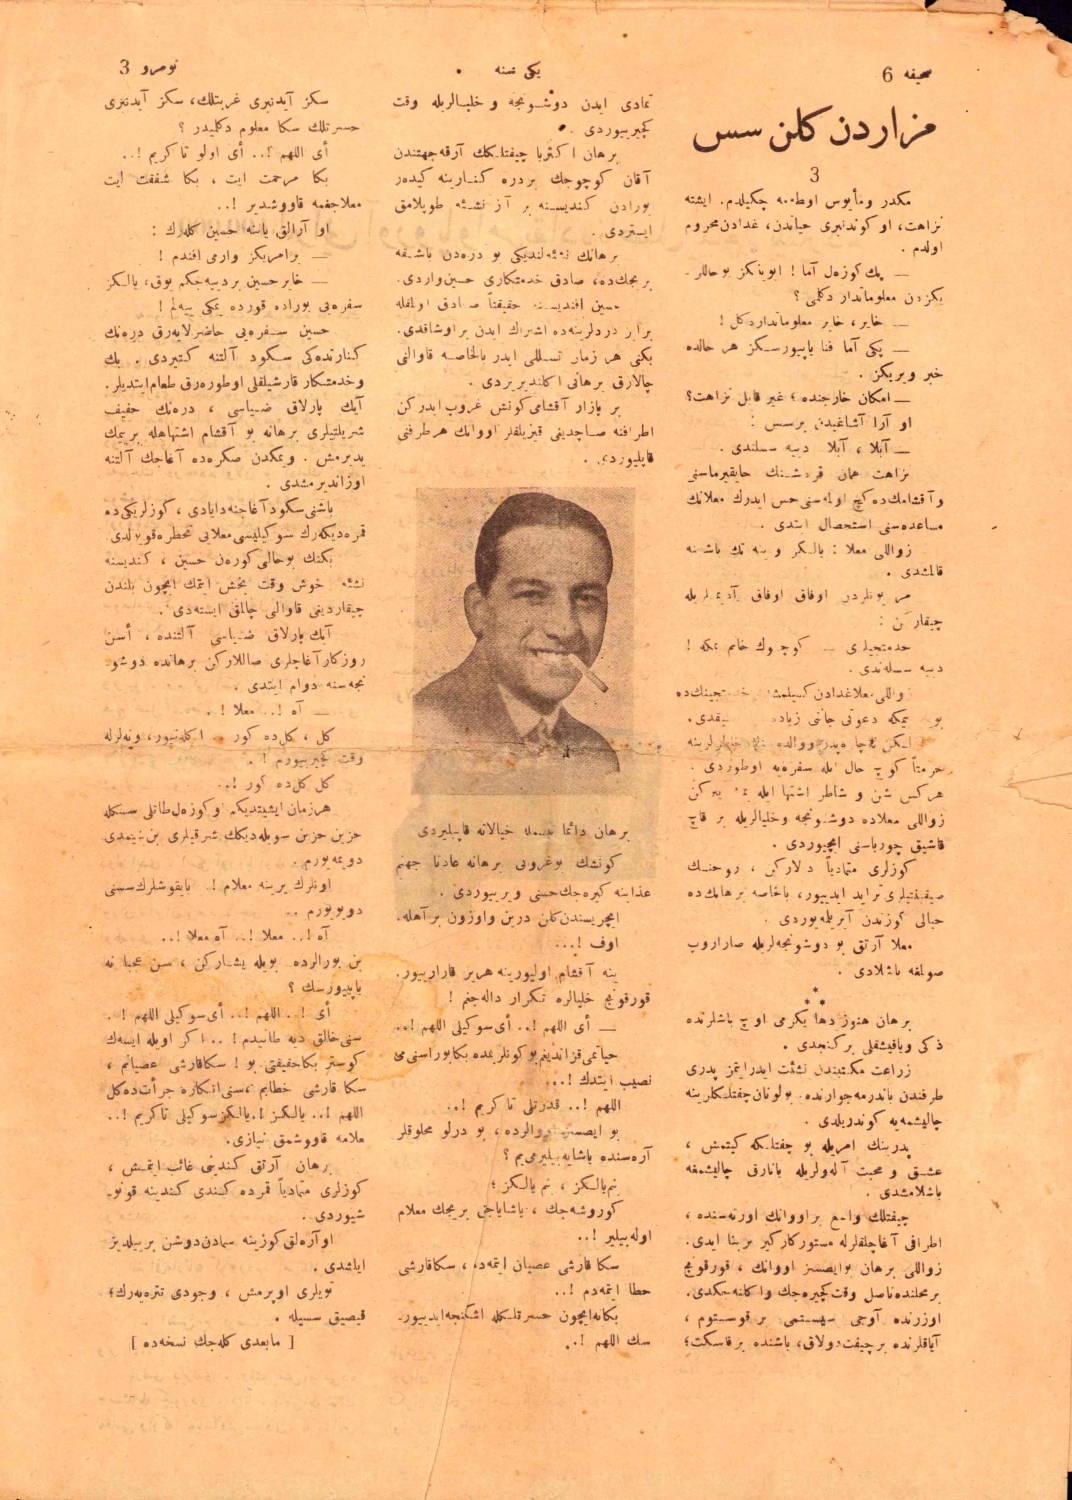 صحیفه 6
یكی سنه
نومرو 3
مزاردن كلن سس
3
مكدر ومأیوس اوطه‌سنه چكیلدم. ایشته
نزاهت، او كوندنبری حیاتدن، غدادن محروم
اولدم .
— پك كوزه‌ل آما ! ابوینكز بو حاللر-
یكزدن معلوماتدار دكلمی ؟
— خایر، خایر معلوماتدار دكل !
— یكی آما فنا یاپیورسكز هر حالده
خبر ویریكز .
— امكان خارجنده ؛ غیر قابل نزاهت؟
او آرا آشاغیدن برسس :
— آبلا ، آبلا دییه سسلندی .
نزاهت همان قردشنك حایقیرماسنی
وآقشامك‌ده كچ اولمه‌سنی حس ایدرك معلانك
مساعده‌سنی استحصال ایتدی .
زواللی معلا : یالكز وینه تك باشنه
قالمشدی .
اوفاق اوفاق آدیملریله
چیقاركن :
خدمتجیلری — كوچوك خانم یمكه !
دییه سسلندی.
زواللی معلا غدادن كسیلمشدی
یمكه دعوتی جاننی زیاده
حرمتاً كوچ حال ایله سفره‌یه اوطوردی .
هركس شن و شاطر اشتها ایله یمك یركن
زواللی معلاده دوشونجه وخلیالریله بر قاچ
قاشیق چورباسنی ایچیوردی .
كوزلری متمادیاً دالاركن ، روحنك
صیقنتیلری تزاید ایدییور، بالخاصه برهانك‌ده
خیالی كوزندن آیریلمه‌یوردی .
معلا آرتق بو دوشونجه‌لریله صاراروب
صولمغه باشلادی .
* * *
برهان هنوز دها یكرمی اوچ یاشلرنده
ذكی ویاقیشقلی بر كنجدی .
زراعت مكتبندن نشئت ایدرایتمز پدری
طرفندن باندرمه جوارنده بولونان چفتلكلرینه
چالیشمه‌یه كوندریلدی .
پدرینك امریله بو چفتلكه كیتمش ،
عشق و محبت آله‌ولریله یانارق چالیشمغه
باشلامشدی .
چیفتلك واسع بر اووانك اورته‌سنده ،
اطرافی آغاچلقلرله مستور كاركیر بر بنا ایدی.
زواللی برهان بوایصسز اووانك ، قورقونچ
بر محلنده ناصل وقت كچیره‌جك واكلنه‌جكدی.
اوزرنده آوجی سیستمی بر قوستوم ،
آیاقلرنده بر چیفت دولاق، باشنده بر قاسكت؛
تمادی ایدن دوشونجه و خلیالریله وقت
كچیریوردی .
برهان اكثریا چیفتلكك آرقه جهتندن
آقان كوچوجك بر دره كنارینه كیدر
بورادن كندیسنه بر آز نشئه طوپلامق
ایستردی .
برهانك نشئه‌لندیكی بو دره‌دن باشقه
بر بجك‌ده، صادق خدمتكاری حسین واردی.
حسین افندیسنه حقیقتاً صادق اولمقله
برابر دردلرینه‌ده اشتراك ایدن بر اوشاقدی.
بكنی هر زمان تسللی ایدر بالخاصه قاوالنی
چالارق برهانی اكلندیریردی .
بر پازار آقشامی كونش غروب ایدركن
اطرافنه صاچدیغی قیزیللقلر اووانك هر طرفنی
قاپلیوردی .
برهان دائما خیالاته قاپیلیردی
كونشك بوغروبی برهانه عادتا جهنم
عذابنه كیره‌جك حسنی ویریبوردی .
ایچریسندن كلن درین واوزون بر آهله.
اوف !...
ینه آقشام اولیورینه هریر قاراریبور.
قورقونچ خلیالره تكرار داله‌جغم !
— أی اللهم !.. أی سوكیلی اللهم !..
حیاتمی قزاندیغم بو كونلریمده بكا بوراسنی می
نصیب ایتدك !...
اللهم !.. قدرتلی تاكریم !..
بو ایصسز اووالرده ، بو درلو مخلوقلر
آره‌سنده یاشایه‌بیلیرمی‌یم ؟
بنم یالكز ، بنم یالكز ؛
كوروشه‌جك ، یاشایاجق بریجك معلام
اوله‌بیلیر !..
سكا قارشی عصیان ایتمه‌م ، سكا قارشی
خطا ایتمه‌دم !..
بكا نه ایچون حسرتلكله اشكنجه ایدییور-
سك اللهم !..
سكز آیدنبری غربتلك، سكز آیدنبری
حسرتلك سكا معلوم دكلمیدر ؟
أی اللهم !.. أی اولو تاكریم !..
بكا مرحمت ایت ، بكا شفقت ایت
معلاجغمه قاووشدیر !..
او آرالق یاننه حسین كله‌رك :
— بر امریكز وارمی افندم !
— خایر حسین بر دییه‌جكم یوق، یالكز
سفره‌یی بوراده قورده یمكی ییه‌لم !
حسین سفره‌یی حاضرلایه‌رق دره‌نك
كنارنده‌كی سكود آلتنه كتیردی . بك
وخدمتكار قارشیلقلی اوطوره‌رق طعام ایتدیلر.
آیك پارلاق ضیاسی ، دره‌نك خفیف
شریلتیلری برهانه بو آقشام اشتهاهله بر ییمك
یدیرمش . ویمكدن صكره‌ده آغاجك آلتنه
اوزاندیرمشدی .
باشنی سكود آغاجنه دایادی ، كوزلریكی ده
قمره دیكه‌رك سوكیلیسی معلایی تخطره قویولدی
بكنك بوحالی كوره‌ن حسین ، كندیسنه
نشئه خوش وقت بخش ایتمك ایچون بلندن
چیقاردیغی قاوالی چالمق ایسته‌دی .
آیك پارلاق ضیاسی آلتنده ، أسن
روزكار آغاجلری صاللاركن برهانده دوشو-
نجه‌سنه دوام ایتدی .
— آه !.. معلا !.
كل ، كل‌ده كور .. اكله‌نیور، و نه‌لرله
وقت كچیریبورم ! .
كل كل‌ده كور !..
هر زمان ایشیتدیكم و كوزه‌ل طاتلی سسكله
حزین حزین سویله‌دیكك شرقیلری بن شیمدی
دویمه‌یورم .
اونلرك یرینه معلام ! بایقوشلرك سسنی
دویویورم ..
آه !.. معلا !.. آه معلا !..
بن بورالرده بویله یشاركن ، سن عجبا نه
یاپییورسك ؟
أی !.. اللهم !.. أی سوكیلی اللهم ! .
سنی خالق دیه طانیدم ! .. اكر اویله ایسه‌ك
كوستر بكا حقیقتی بو ! سكا قارشی عصیانم ،
سكا قارشی خطابم ، سنی انكاره جرأت ده كل
اللهم !.. یالكز ! یالكز سوكیلی تاكریم !..
معلامه قاووشمق نیازی.
برهان آرتق كندینی غائب ایتمش ،
كوزلری متمادیاً قمرده كندی كندینه قونو-
شیوردی .
اوآره‌لق كوزینه سمادن دوشن بر ییلدیز
ایلشدی .
تویلری اوپرمش ، وجودی تتره‌یه‌رك؛
قیصیق سسیله .
[ مابعدی كله‌جك نسخه‌ده ]